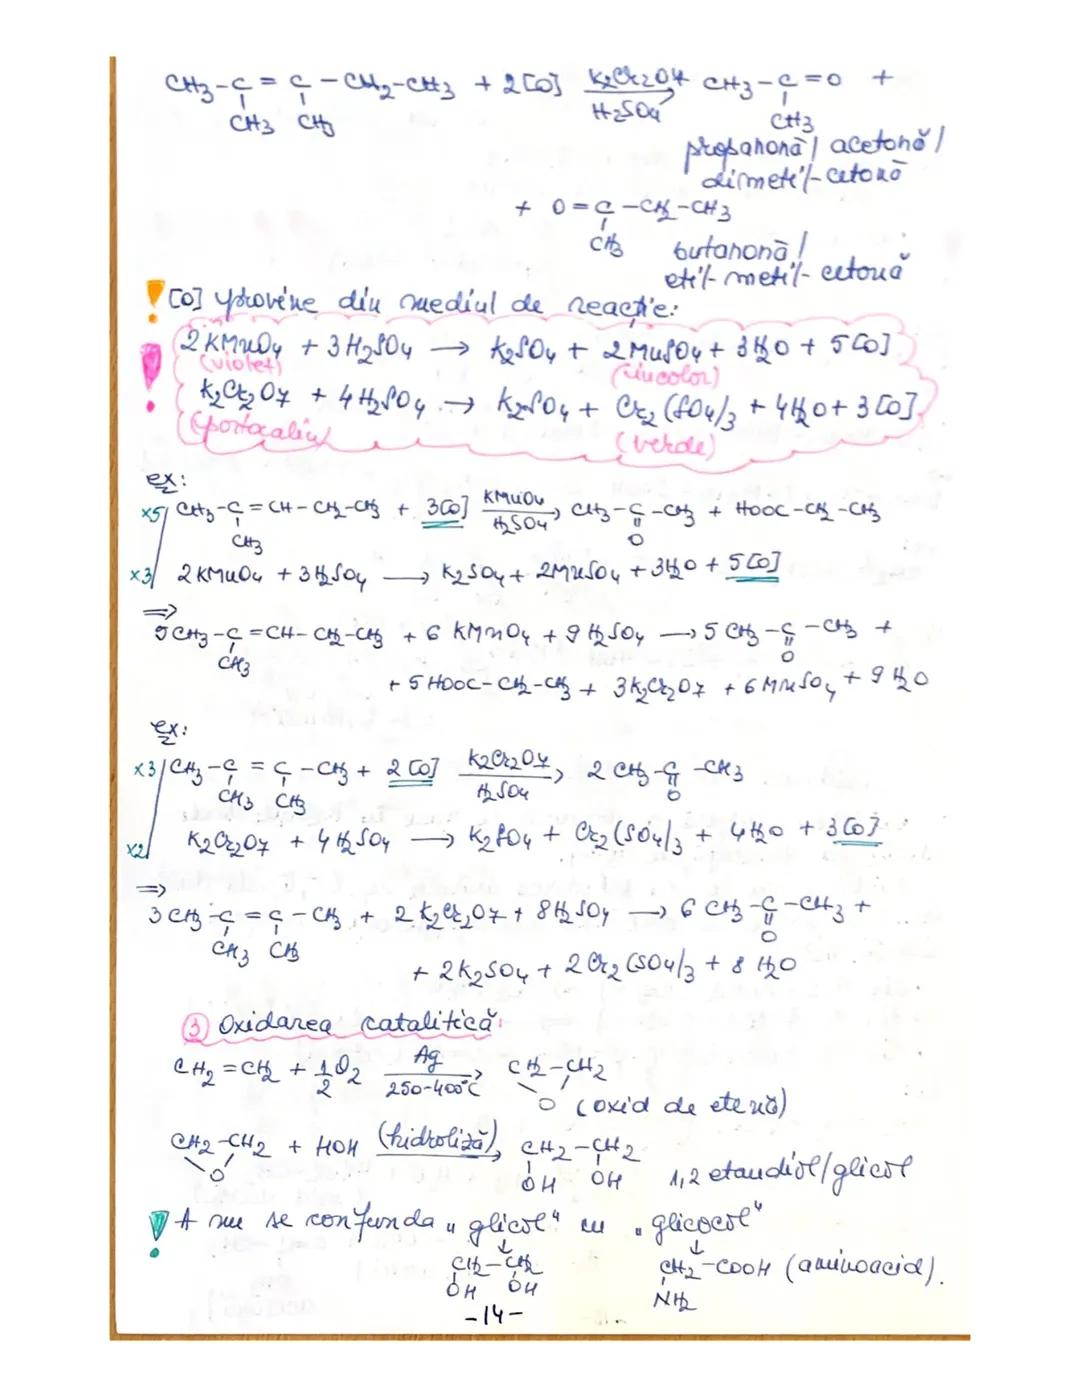 CH3-C = C - CH2-CH3 + 2[O] K2Cr2O7 CH3-C=O +
H2SO4
CH3 CH3 CH3
propanonă / acetonă /
dimetil-cetonă
+ O=C-CH2-CH3
CH3 butanonă /
etil-metil-cetonă
! [O] provine din mediul de reacție:
! 2KMnO4 + 3H2SO4 → K2SO4 + 2MnSO4 + 3H2O + 5[O]
(violet) (incolor)
K2Cr2O7 + 4H2SO4 → K2SO4 + Cr2(SO4)3 + 4H2O + 3[O]
(portocaliu) (verde)
ex:
x5/ CH3-C=CH-CH2-CH3 + 3[O] KMnO4 → CH3-C-CH3 + HOOC-CH2-CH3
H2SO4
CH3 O
x3/ 2KMnO4 + 3H2SO4 → K2SO4 + 2MnSO4 + 3H2O + 5[O]
=>
5CH3-C=CH-CH2-CH3 + 6 KMnO4 + 9H2SO4 → 5CH3-C-CH3 +
CH3 O
+ 5HOOC-CH2-CH3 + 3K2Cr2O7 + 6MnSO4 + 9H2O
ex:
x3/ CH3-C = C-CH3 + 2[O] K2Cr2O7 → 2CH3-C-CH3
H2SO4
CH3 CH3 O
x2/ K2Cr2O7 + 4H2SO4 → K2SO4 + Cr2(SO4)3 + 4H2O + 3[O]
=>
3CH3-C = C-CH3 + 2K2Cr2O7 + 8H2SO4 → 6CH3-C-CH3 +
CH3 CH3 O
+ 2K2SO4 + 2Cr2(SO4)3 + 8H2O
③ Oxidarea catalitică:
CH2=CH2 + 1/2 O2 Ag → CH2-CH2
250-400°C
O (oxid de etenă)
CH2-CH2 + HOH (hidroliză) → CH2-CH2
O OH OH 1,2 etandiol/glicol
! A nu se confunda „glicol" cu „glicocol"
↓ ↓
CH2-CH2 CH2-COOH (aminoacid).
OH OH NH2
-14-